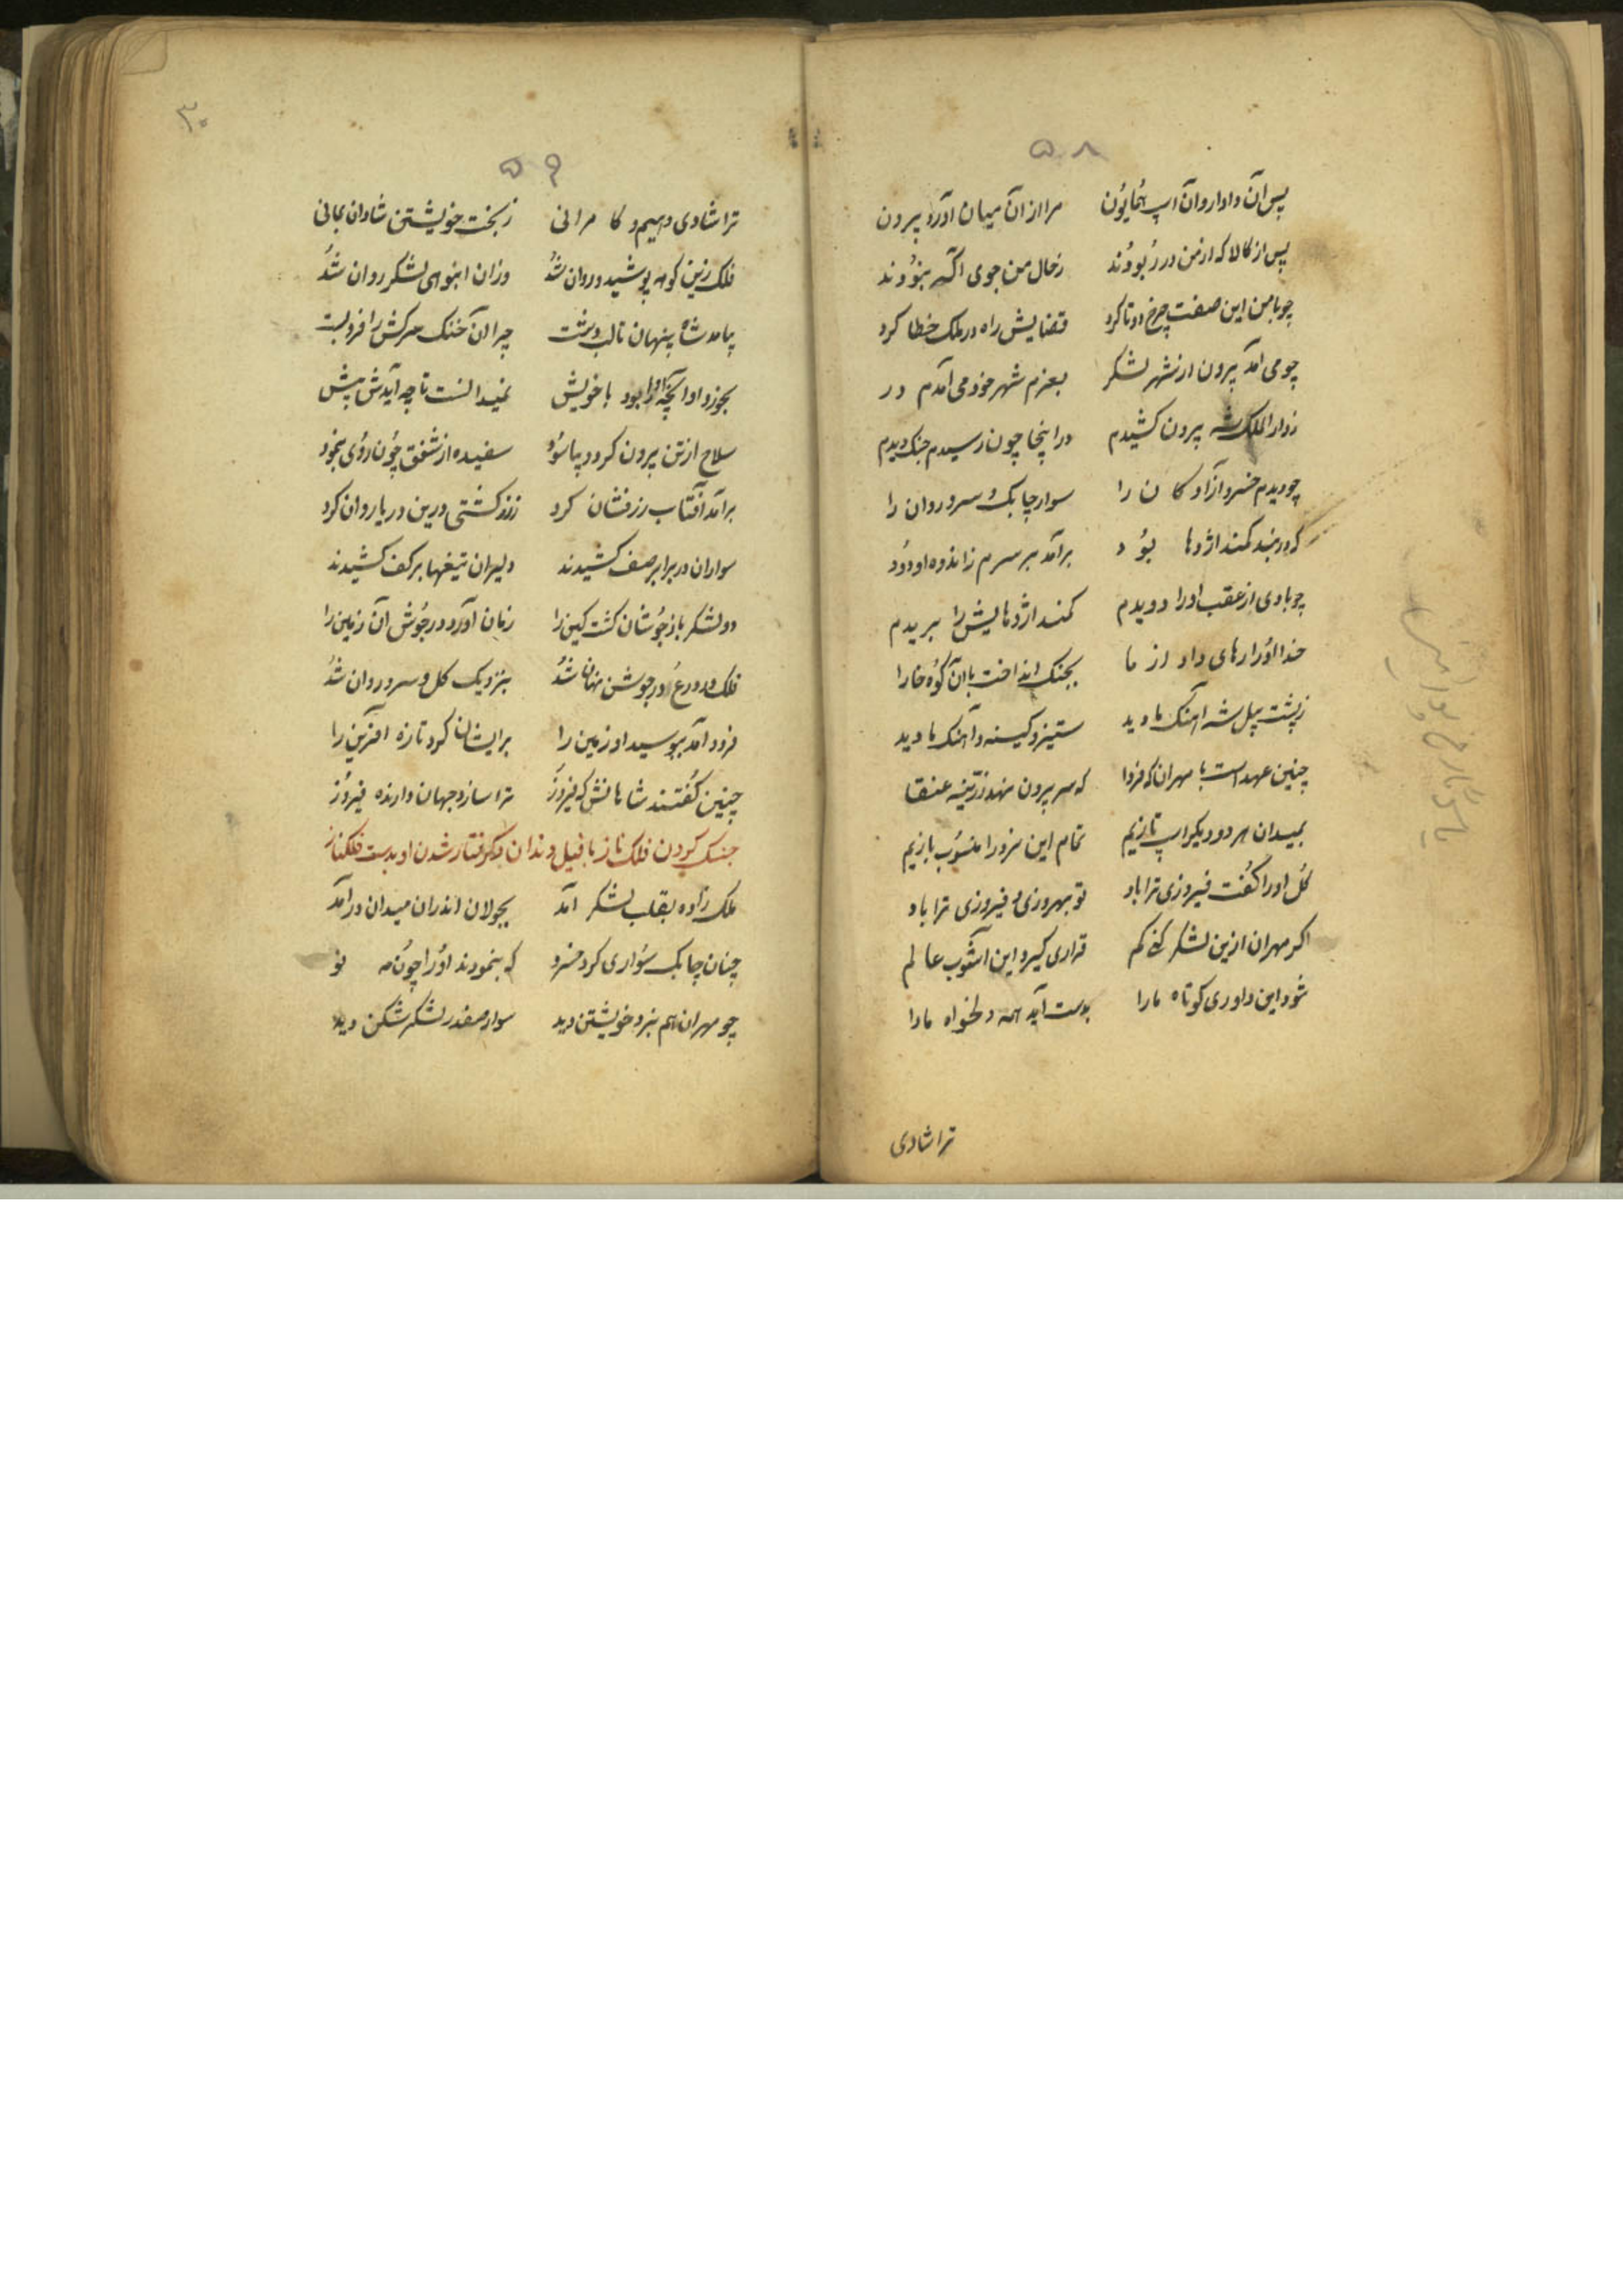 ۵۸
پس آن دادار وان اسپ همایون مرا از آن میان آورد بیرون
پس از کالا که از من در ربودند ز حال من جوی آگه نبودند
چو با من این صفت چرخ دوتا کرد قضایش راه در ملک خطا کرد
چو می آمد بیرون از شهر لشکر بعزم شهر خود می آمدم در
ز دار الملک شه بیرون کشیدم در اینجا چون رسیدم جنک دیدم
چو دیدم خسرو آزادکان را سوار چابک و سرو روان را
که در بند کمند اژدها بود برآمد بر سرم ز اندوه او دود
چو بادی از عقب او را دویدم کمند اژدهایش را بریدم
خدا او را رهای داد از ما بجنک انداخت با آن کوه خارا
ز پشت پیل شه آهنک ما دید ستیز و کینه و آهنک ما دید
چنین عهد است با مهران که فردا که سر بیرون نهد زرینه عنقا
بمیدان هر دو دیکر اسپ تازیم تمام این نرد را منسوب بازیم
کل او را کفت فیروزی ترا باد تو بهروزی و فیروزی ترا باد
اکر مهران ازین لشکر کنی کم قراری کیرد این آشوب عالم
شود این داوری کوتاه ما را بدست آید همه دلخواه ما را
ترا شادی
۳۰
۵۹
ترا شادی دهیم و کامرانی ز بخت خویشتن شادان بمانی
فلک زین کوه پوشید و روان شد وزان انبوهی لشکر روان شد
بیامد شاه پنهان تا لب دشت چرا آن خنک سرکش را فرو بست
بخورد او آنچه او را بود با خویش نمیدانست تا چه آیدش پیش
سلاح از تن بیرون کرد و بیاسود سفیده از شفق چون روی بنمود
برآمد آفتاب زرفشان کرد ز زر کشتی درین دریا روان کرد
سواران در برابر صف کشیدند دلیران تیغها بر کف کشیدند
دو لشکر باز جوشان کشت کین را زمان آورد در جوش آن زمین را
فلک در درع و در جوشن نهان شد بنزدیک کل و سرو روان شد
فرود آمد ببوسید او زمین را بر ایشان کرد تازه آفرین را
چنین کفتند شاهانش که فیروز ترا سازد جهان دارنده فیروز
جنک کردن فلک ناز با فیل دندان و کرفتار شدن او بدست فلکناز
ملک زاده بقلب لشکر آمد بجولان اندران میدان درآمد
چنان چابک سواری کرد خسرو که بنمودند او را چون مه نو
چو مهران هم نبرد خویشتن دید سوار صفدر لشکر شکن دید